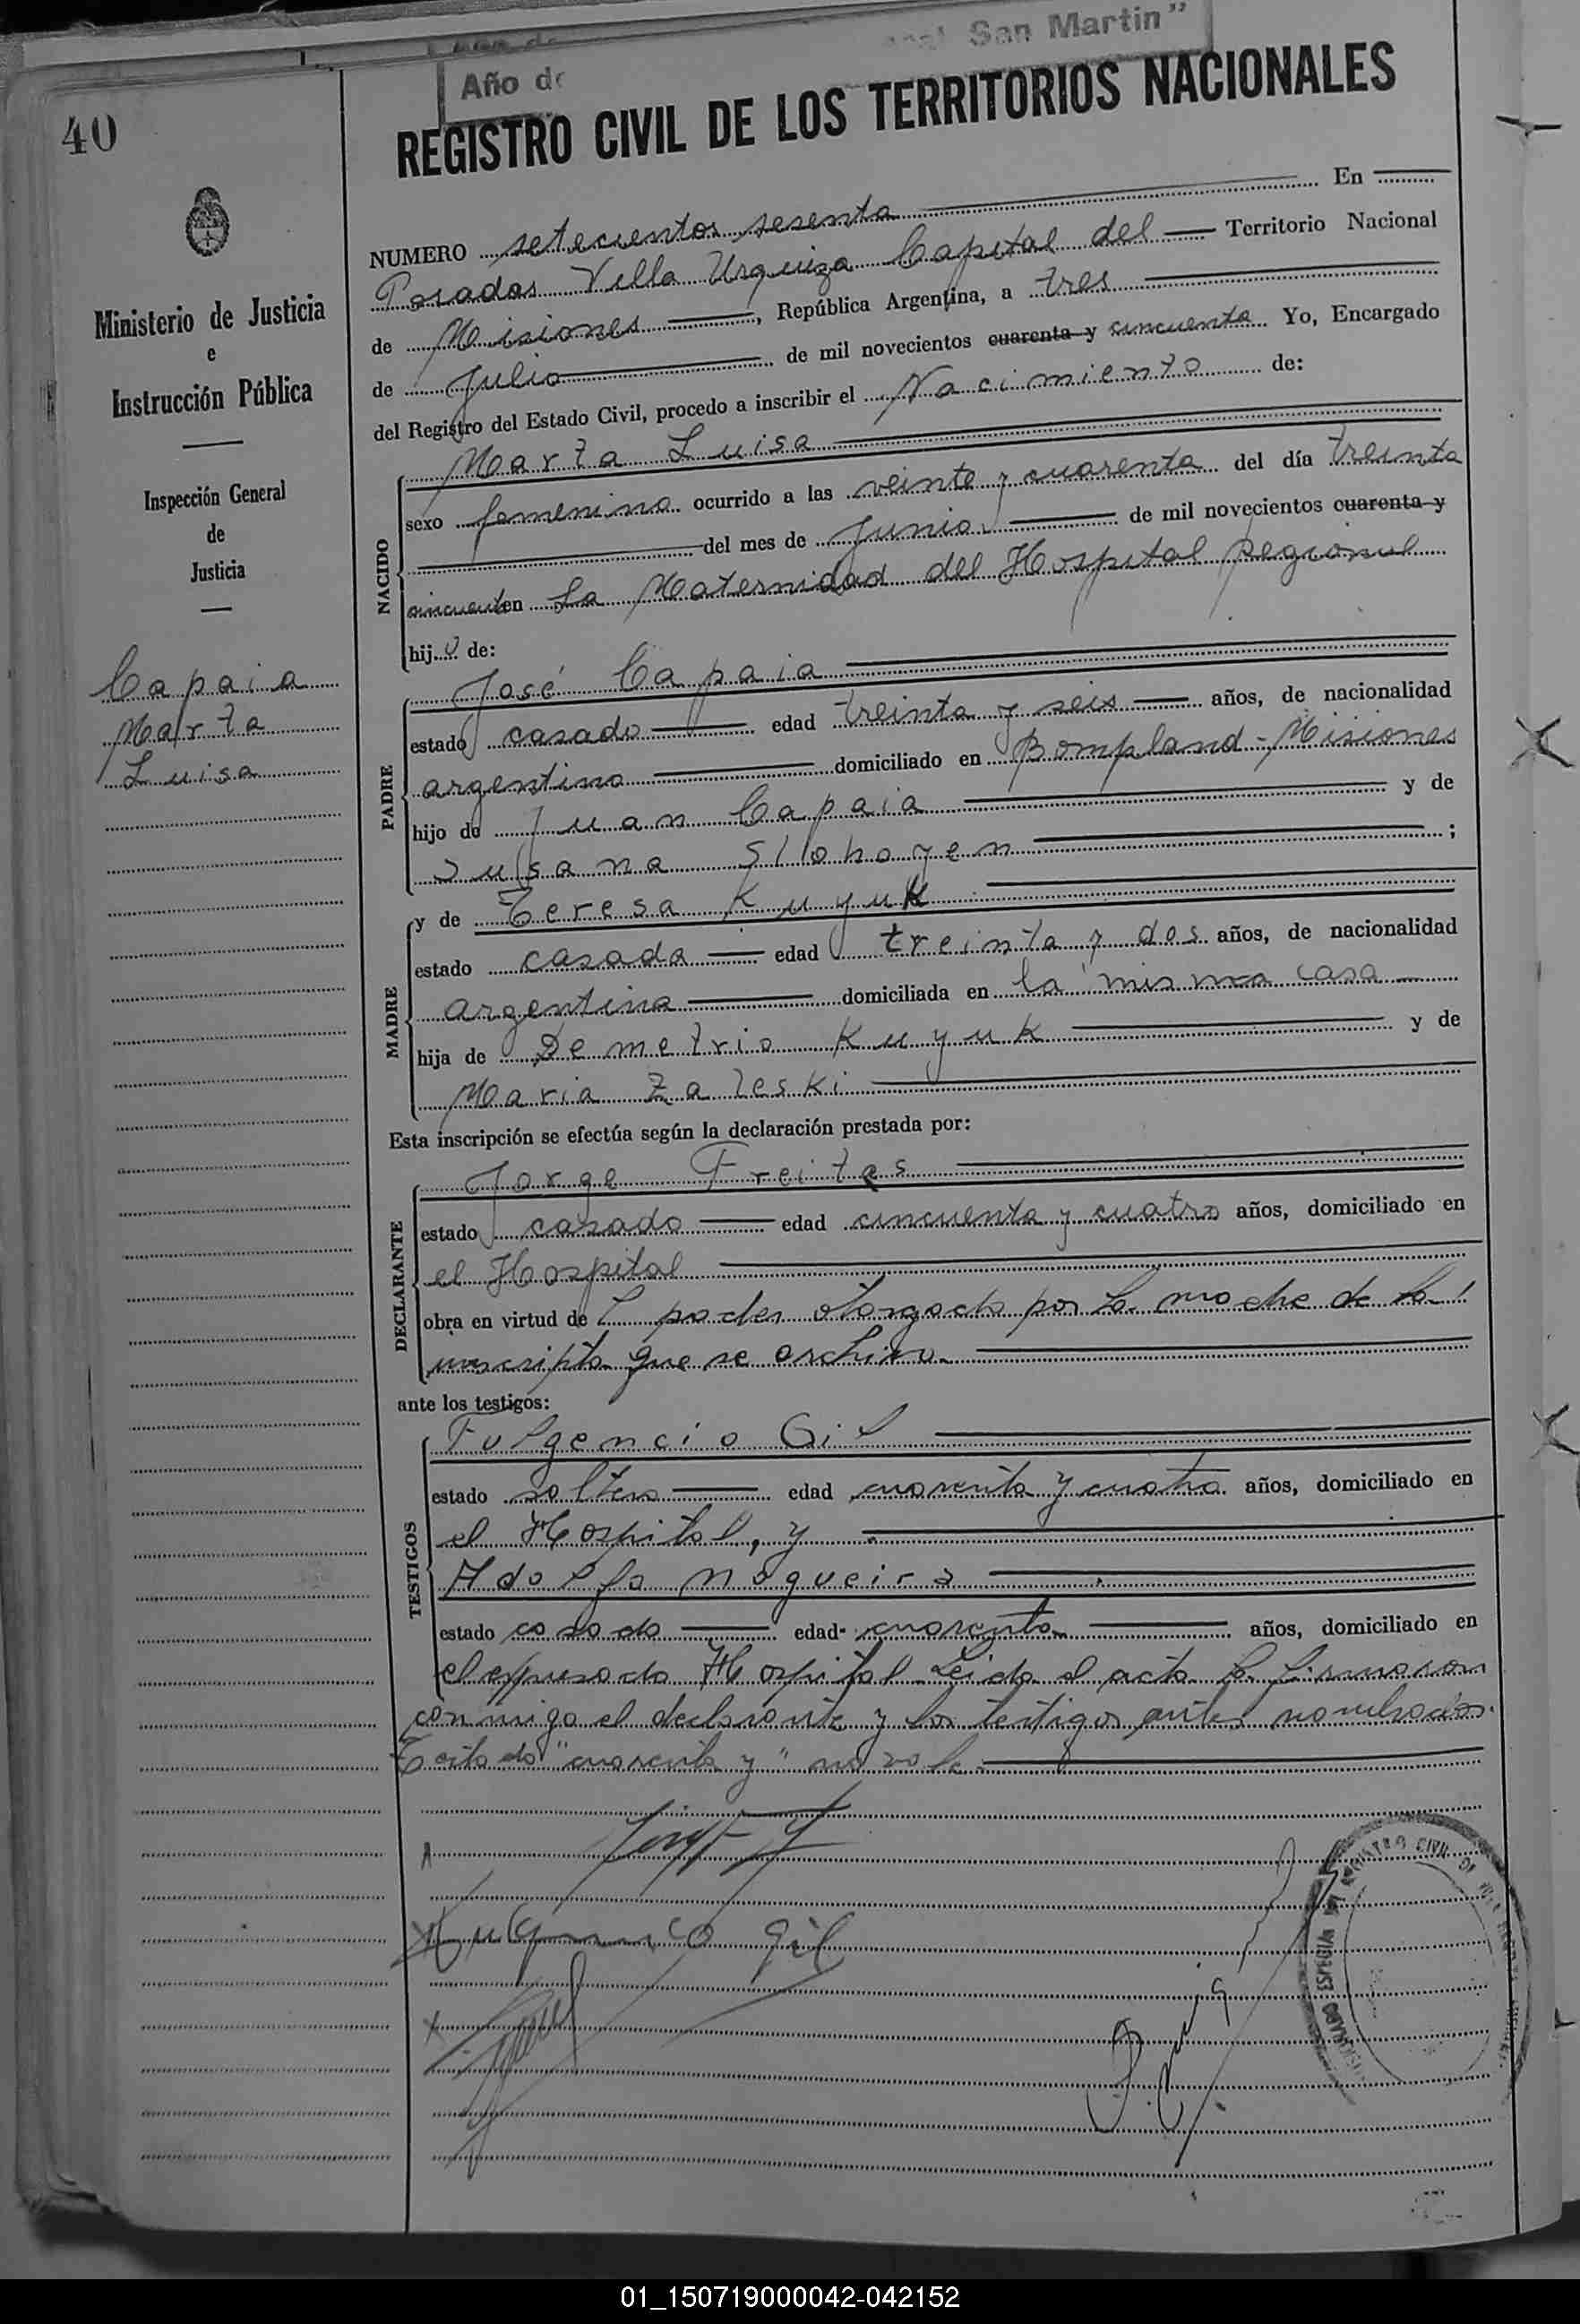 Año de
San Martin"
40
REGISTRO CIVIL DE LOS TERRITORIOS NACIONALES
NUMERO setecientos sesenta En
Posadas Villa Urquiza Capital del Territorio Nacional
de Misiones, República Argentina, a tres
de Julio de mil novecientos cuarenta y cincuenta Yo, Encargado
del Registro del Estado Civil, procedo a inscribir el Nacimiento de:
Ministerio de Justicia
e
Instrucción Pública
Inspección General
de
Justicia
Capaia
Marta
Luisa
NACIDO
Marta Luisa
sexo femenino ocurrido a las veinte y cuarenta del día treinta
del mes de Junio de mil novecientos cuarenta y
cincuenta en La Maternidad del Hospital Regional
hij a de:
PADRE
José Capaia
estado casado edad treinta y seis años, de nacionalidad
argentino domiciliado en Bompland - Misiones
hijo de Juan Capaia y de
Susana Slohoyen;
MADRE
y de Teresa Kuyuk
estado casada edad treinta y dos años, de nacionalidad
argentina domiciliada en la misma casa
hija de Demetrio Kuyuk y de
Maria Zaleski
Esta inscripción se efectúa según la declaración prestada por:
DECLARANTE
Jorge Freites
estado casado edad cincuenta y cuatro años, domiciliado en
el Hospital
obra en virtud de poder otorgado por la madre de la
inscripta que se archiva
ante los testigos:
TESTIGOS
Fulgencio Gil
estado soltero edad cuarenta y cuatro años, domiciliado en
el Hospital, y
Adolfo Nogueira
estado casado edad cuarenta años, domiciliado en
el expresado Hospital Leida el acta la firmaron
conmigo el declarante y los testigos antes nombrados.
Testado "cuarenta y" no vale
Fulgencio Gil
REGISTRO CIVIL DE
ESPECIAL
01_150719000042-042152